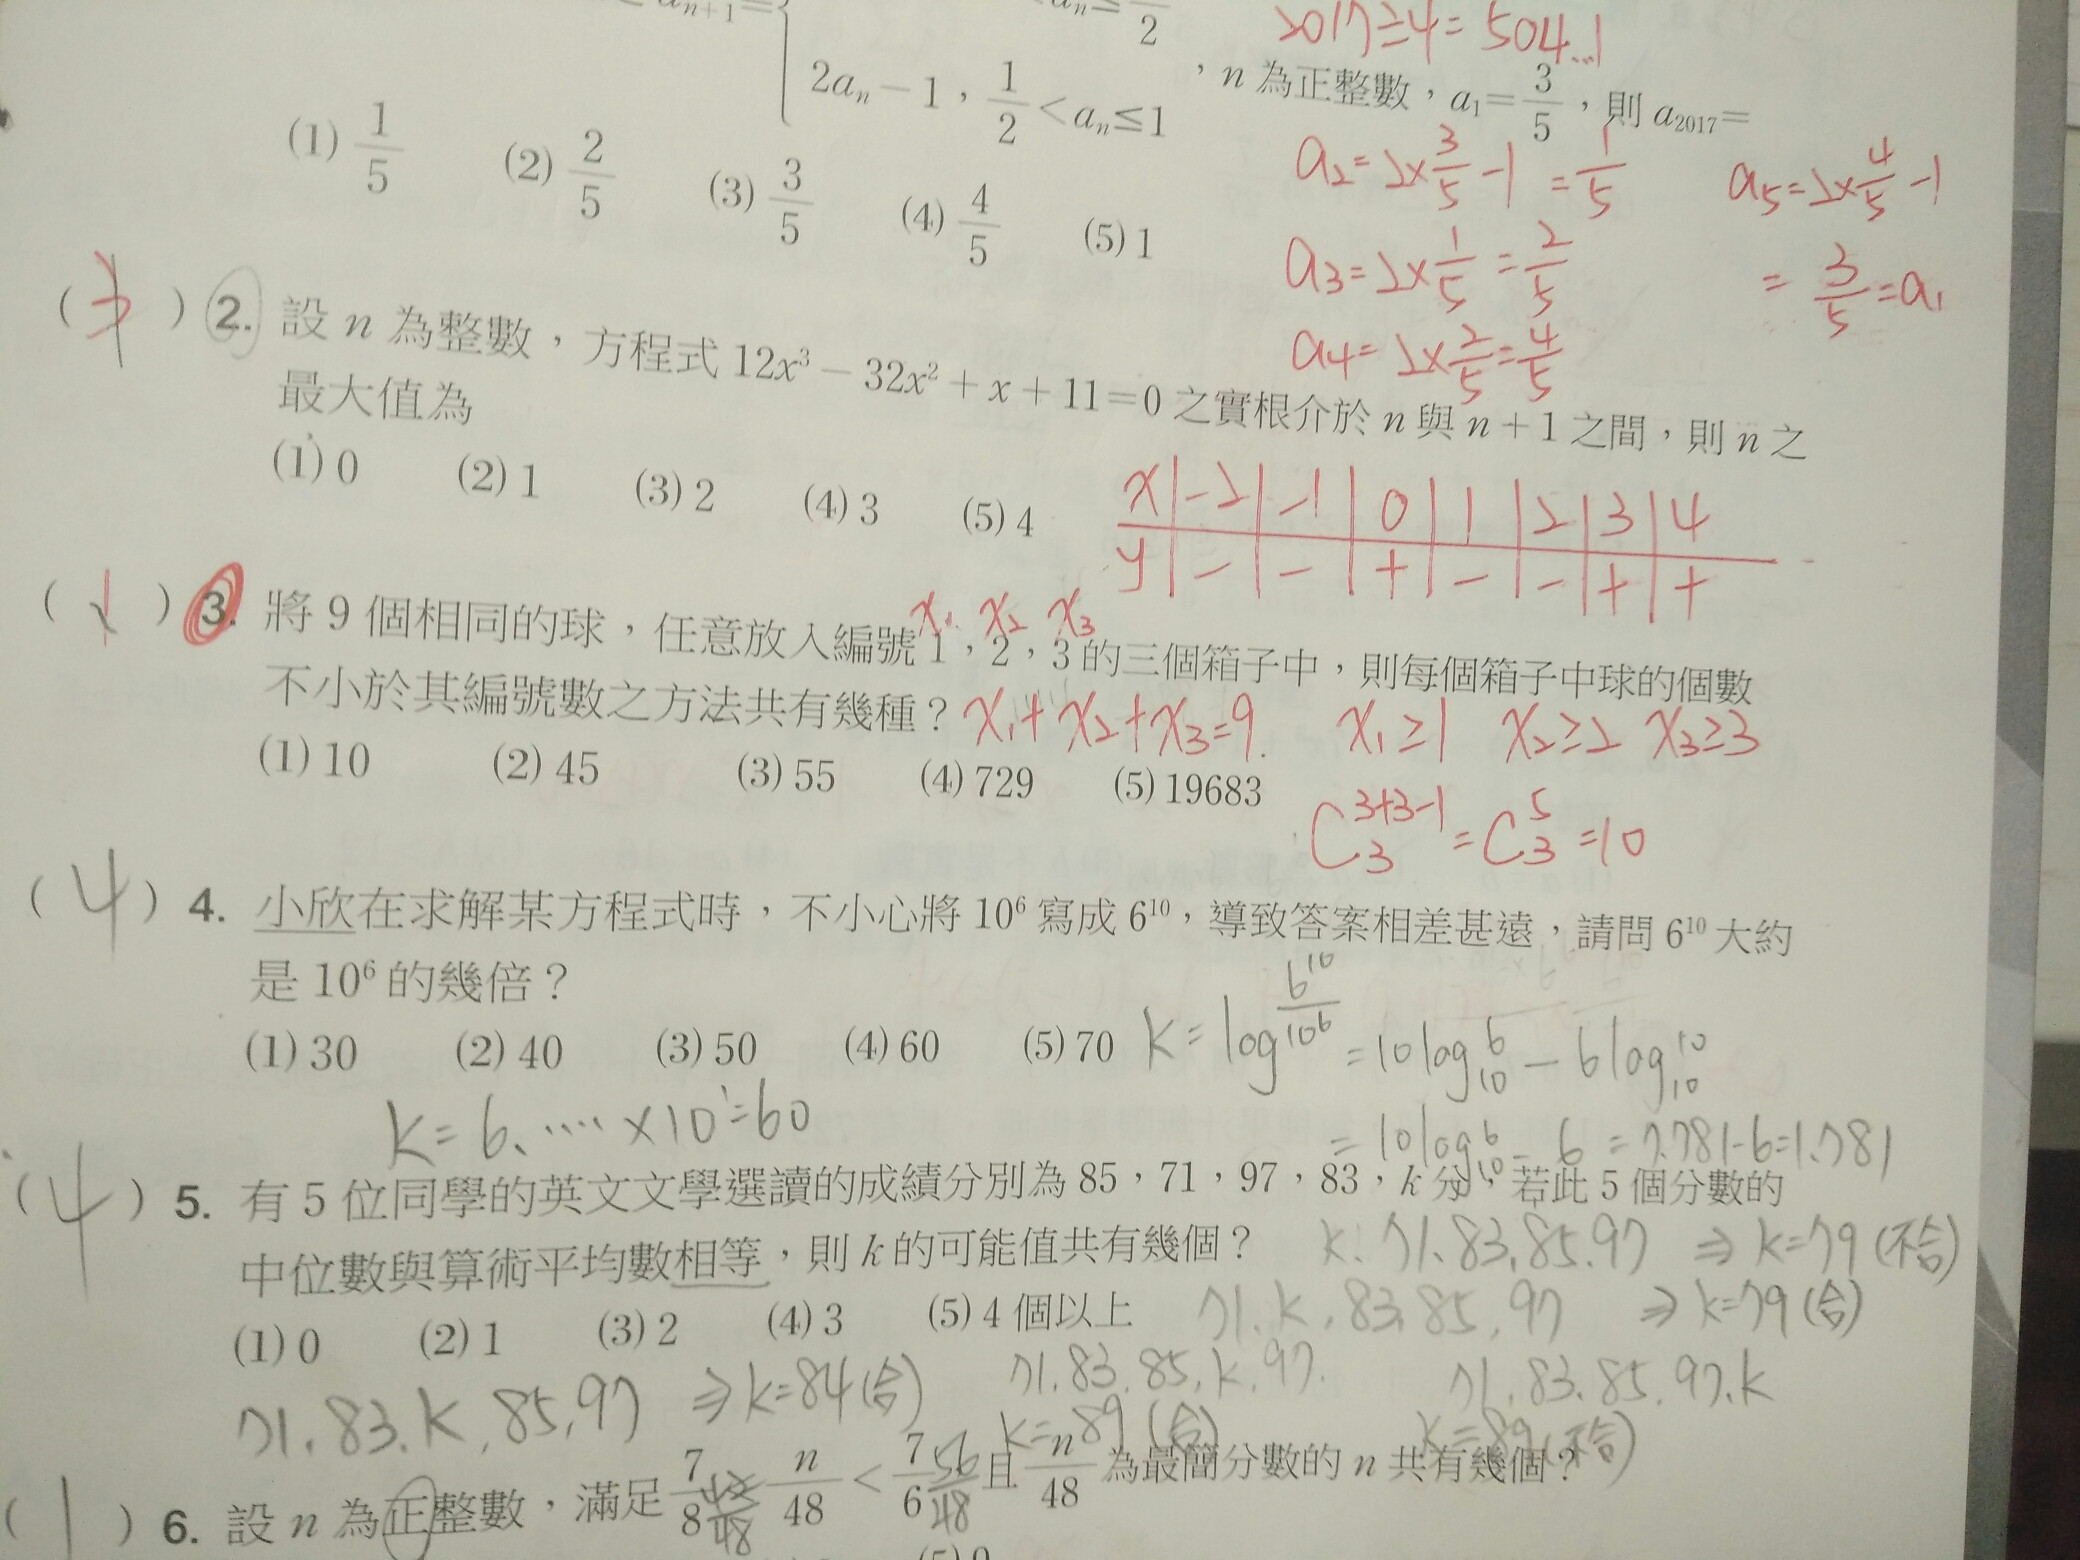 a_{n+1}={ a_n≦1/2
2a_n-1，1/2<a_n≦1 ，n 為正整數，a_1=3/5，則 a_{2017}=
2017÷4=504...1
(1) 1/5 (2) 2/5 (3) 3/5 (4) 4/5 (5) 1
a_2=2×3/5-1=1/5
a_3=2×1/5=2/5
a_4=2×2/5=4/5
a_5=2×4/5-1
=3/5=a_1
( 3 ) 2. 設 n 為整數，方程式 12x³－32x²＋x＋11=0 之實根介於 n 與 n＋1 之間，則 n 之
最大值為
(1) 0 (2) 1 (3) 2 (4) 3 (5) 4
x | -2 | -1 | 0 | 1 | 2 | 3 | 4
y | - | - | + | - | - | + | +
( 1 ) 3. 將 9 個相同的球，任意放入編號 1，2，3 的三個箱子中，則每個箱子中球的個數
x_1 x_2 x_3
不小於其編號數之方法共有幾種？ x_1+x_2+x_3=9. x_1≥1 x_2≥2 x_3≥3
(1) 10 (2) 45 (3) 55 (4) 729 (5) 19683
C^{3+3-1}_3=C^5_3=10
( 4 ) 4. 小欣在求解某方程式時，不小心將 10⁶ 寫成 6¹⁰，導致答案相差甚遠，請問 6¹⁰ 大約
是 10⁶ 的幾倍？
(1) 30 (2) 40 (3) 50 (4) 60 (5) 70
k=log 6¹⁰/10⁶ =10log_{10}6-6log_{10}10
=10log_{10}6-6=7.781-6=1.781
k=6.····×10¹≒60
( 4 ) 5. 有 5 位同學的英文文學選讀的成績分別為 85，71，97，83，k 分，若此 5 個分數的
中位數與算術平均數相等，則 k 的可能值共有幾個？
(1) 0 (2) 1 (3) 2 (4) 3 (5) 4 個以上
k.71.83.85.97 ⇒ k=79(不合)
71.k.83.85.97 ⇒ k=79(合)
71.83.k.85.97 ⇒ k=84(合)
71.83.85.k.97.
k=89(合)
71.83.85.97.k
k=89(不合)
( 1 ) 6. 設 n 為正整數，滿足 7/8 42/48 n/48 < 7/6 56/48 且 n/48 為最簡分數的 n 共有幾個？